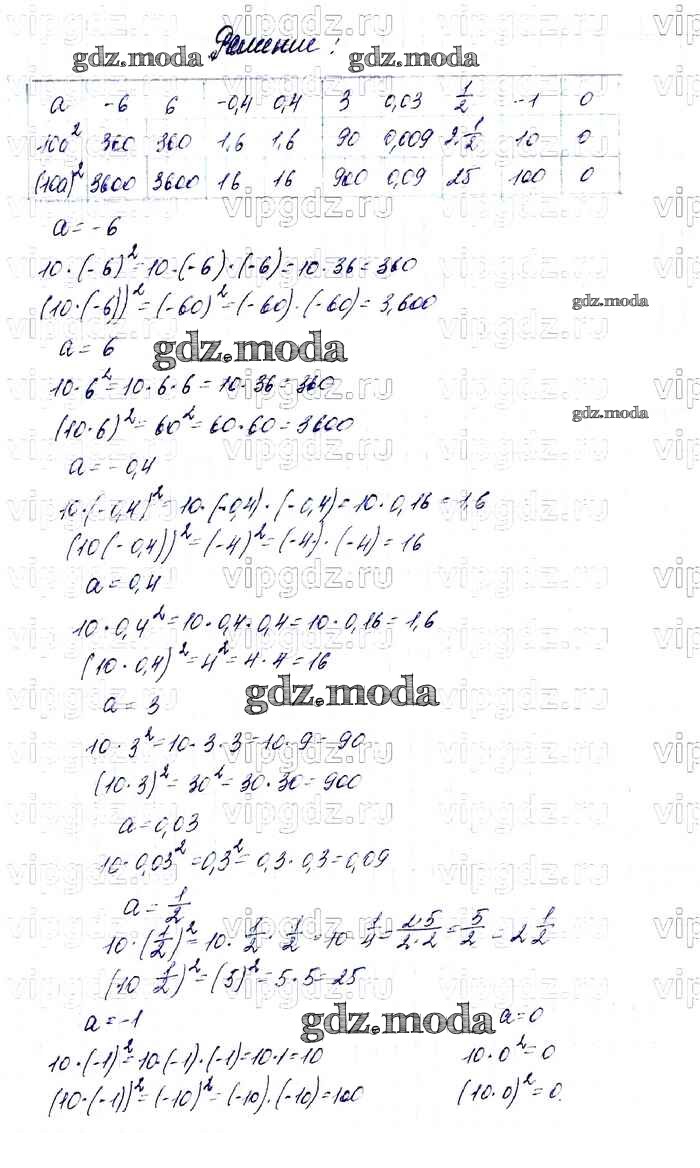 Решение:
gdz.moda gdz.moda
a -6 6 -0,4 0,4 3 0,03 1/2 -1 0
10a² 360 360 1,6 1,6 90 0,009 2·1/2 10 0
(10a)² 3600 3600 16 16 900 0,09 25 100 0
a = -6
10·(-6)²=10·(-6)·(-6)=10·36=360
(10·(-6))²=(-60)²=(-60)·(-60)=3,600
gdz.moda
a = 6
gdz.moda
10·6²=10·6·6=10·36=360
(10·6)²=60²=60·60=3600
gdz.moda
a = -0,4
10·(-0,4)²=10·(-0,4)·(-0,4)=10·0,16=1,6
(10(-0,4))²=(-4)²=(-4)·(-4)=16
a = 0,4
10·0,4²=10·0,4·0,4=10·0,16=1,6
(10·0,4)²=4²=4·4=16
gdz.moda
a = 3
10·3²=10·3·3=10·9=90
(10·3)²=30²=30·30=900
a=0,03
10·0,03²=0,3²=0,3·0,3=0,09
a = 1/2
10·(1/2)²=10·1/2·1/2=10·1/4=2·5/2·2=5/2=2 1/2
(10 1/2)²=(5)²=5·5=25
a=-1 gdz.moda a=0
10·(-1)²=10·(-1)·(-1)=10·1=10 10·0²=0
(10·(-1))²=(-10)²=(-10)·(-10)=100 (10·0)²=0.
vipgdz.ru